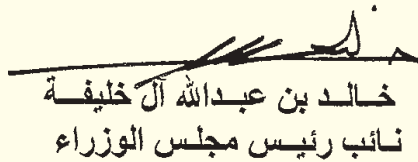 خالد بن عبدالله آل خليفة
نائب رئيس مجلس الوزراء